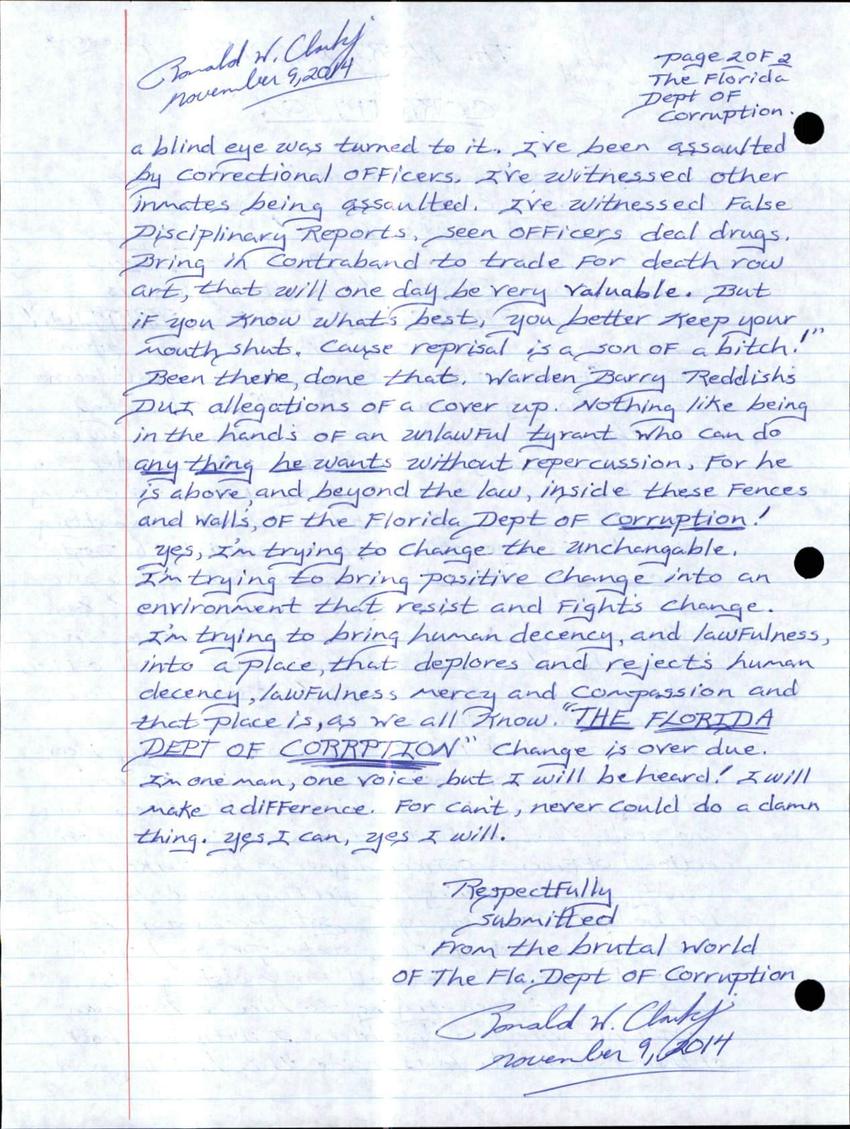 Ronald W. Clark Jr
November 9, 2014
Page 2 OF 2
The Florida
Dept OF
Corruption.
a blind eye was turned to it. I've been assaulted
by correctional OFFicers. I've witnessed other
inmates being assaulted. I've witnessed False
Disciplinary Reports, seen OFFicers deal drugs.
Bring in contraband to trade For death row
art, that will one day be very valuable. But
iF you Know what's best, you better Keep your
mouth shut. Cause reprisal is a son oF a bitch!"
Been there, done that. Warden Barry Reddishs
DUI allegations OF a cover up. Nothing like being
in the hands OF an unlawFul tyrant who can do
any thing he wants without repercussion, For he
is above, and beyond the law, inside these Fences
and walls, OF the Florida Dept OF Corruption!
yes, I'm trying to change the unchangable.
I'm trying to bring positive change into an
environment that resist and Fights change.
I'm trying to bring human decency, and lawFulness,
into a place, that deplores and rejects human
decency, lawFulness mercy and compassion and
that place is, as we all Know. "THE FLORIDA
DEPT OF CORRPTION" Change is over due.
I'm one man, one voice but I will be heard! I will
make a diFFerence. For can't, never could do a damn
thing. yes I can, yes I will.
RespectFully
submitted
From the brutal world
OF The Fla. Dept OF Corruption
Ronald W. Clark Jr
November 9, 2014